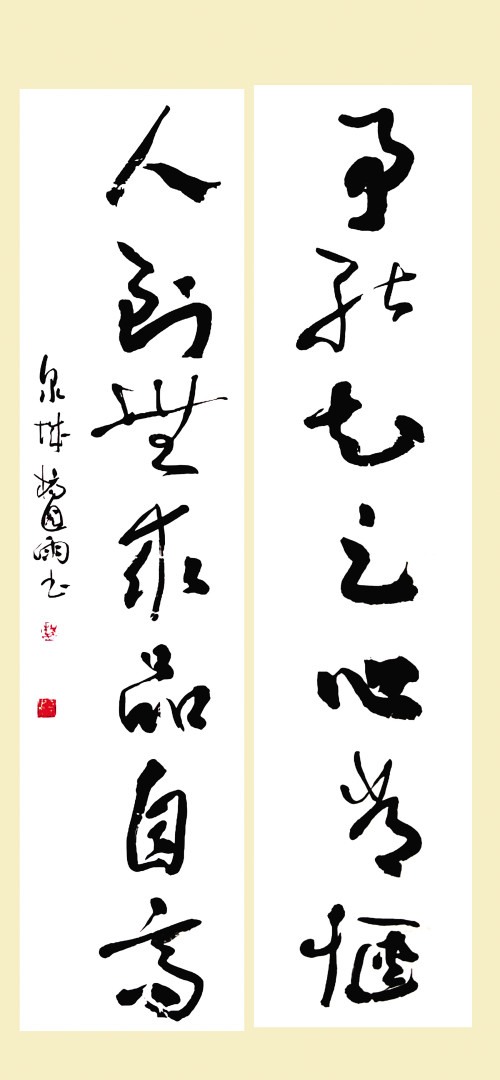 事能知足心常惬
人到無求品自高
泉城 雨书